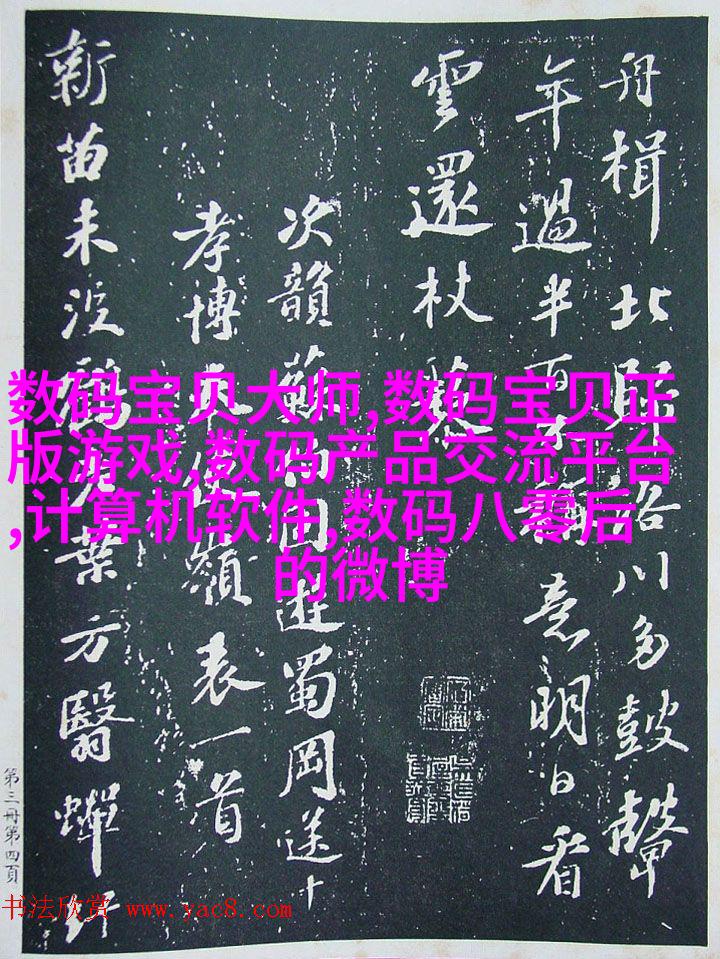 舟楫北歸洛川多鼓聲
年過半百不稱意明日看
雲還杖藜
次韻蘇
同遊蜀岡送
孝博
嶺表一首
新苗未沒鶴
葉方翳蟬
第三冊第四頁
数码宝贝大师,数码宝贝正
版游戏,数码产品交流平台
,计算机软件,数码八零后
的微博
书法欣赏 www.yac8.com